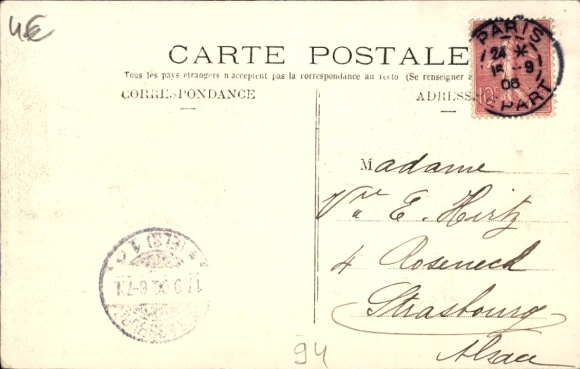 4€
CARTE POSTALE
Tous les pays étrangers n'acceptent pas la correspondance au recto (Se renseigner à
CORRESPONDANCE
ADRESSE
PARIS
24 *
18 -9
06
DÉPART
10c
Madame
Vve E. Hirtz
4 Roseneck
Strasbourg
Alsace
(ELS) 1
17.9.06.6-7
94